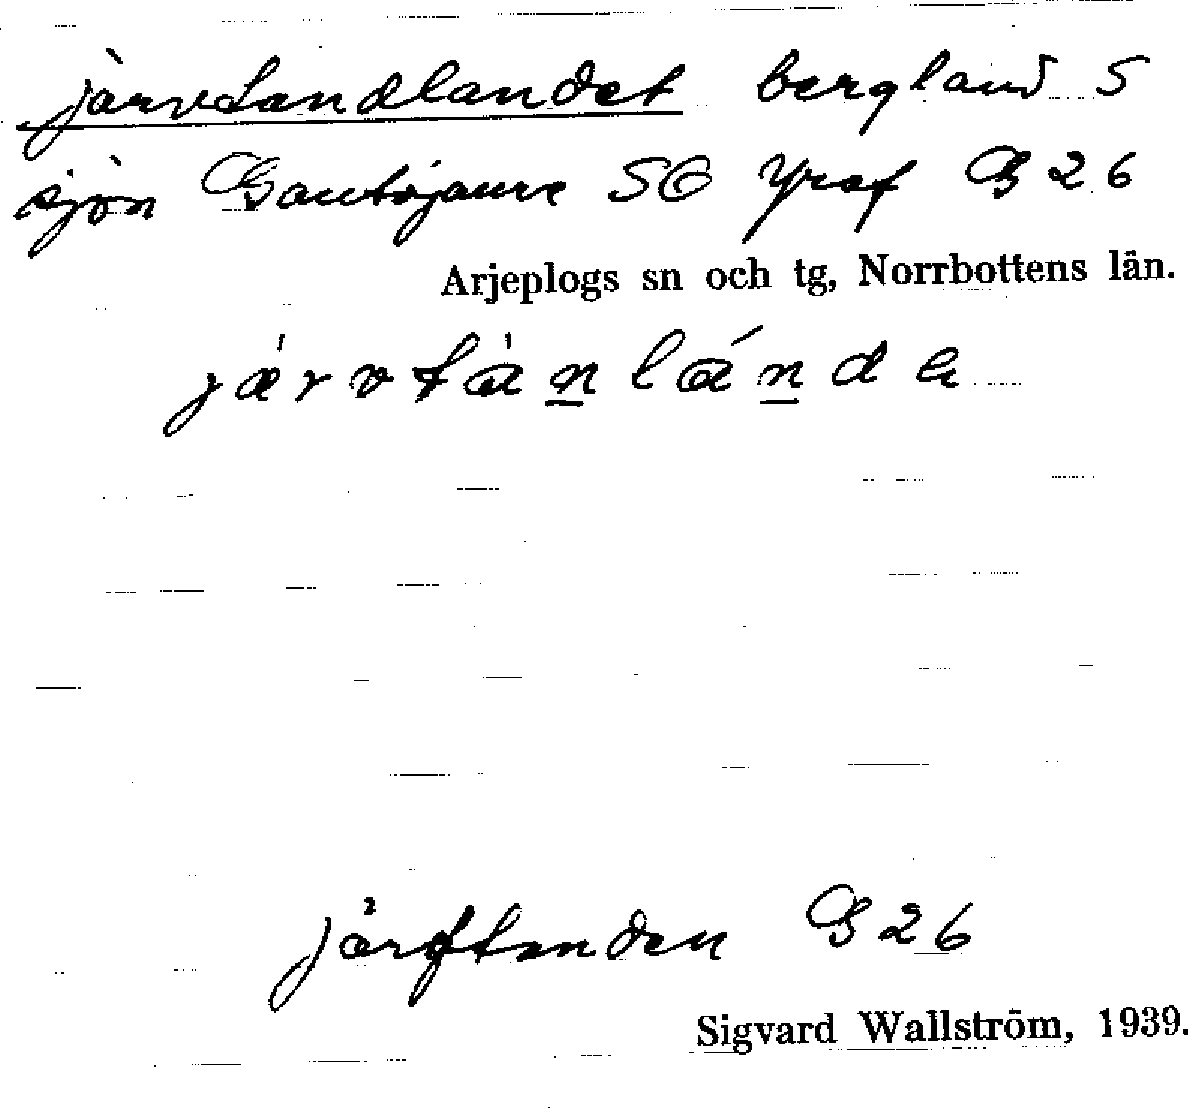 järvtandlandet bergland S
sjön Gautojaure SO Yraf B 26
Arjeplogs sn och tg, Norrbottens län.
järvtànlánda
järftanden B 26
Sigvard Wallström, 1939.